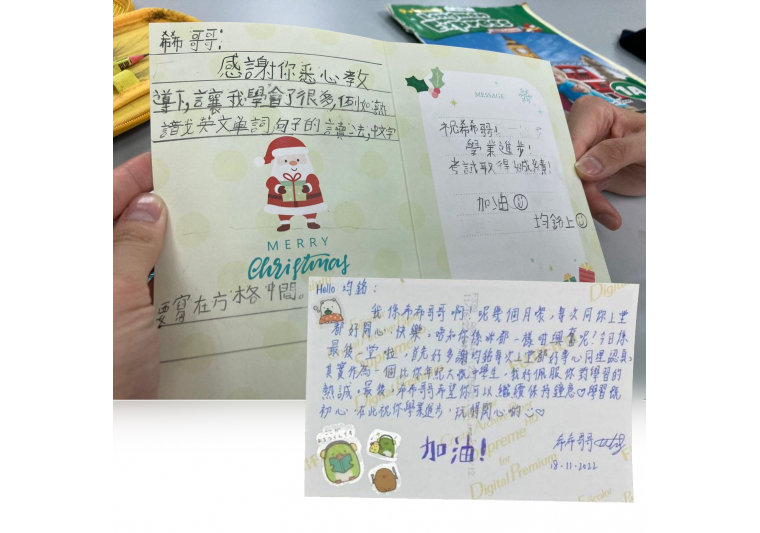 希希哥哥:
感謝你悉心教
導下,讓我學會了很多,例如說
諧或英文單詞句子的讀法,中文字
要寫在方格中間。
MERRY
Christmas
MESSAGE
祝希希哥!
學業進步!
考試取得好成績!
加油
均鈞上
1A
Hello 均鈞:
我係希希哥哥啊!呢幾個月嚟,每次同你上堂
都好開心、快樂,唔知你係咪都一樣咁興奮呢?今日係
最後一堂啦,首先好多謝均鈞每次上堂都好專心同埋認真,
其實作為一個比你年紀大嘅中學生,我好佩服你對學習的
熱誠。最後,希希哥希望你可以繼續保持鍾意♡學習嘅
初心,在此祝你學業進步,玩得開心啲☺♡
加油!
希希哥哥
18.11.2022
Supreme
for
Digital Premium